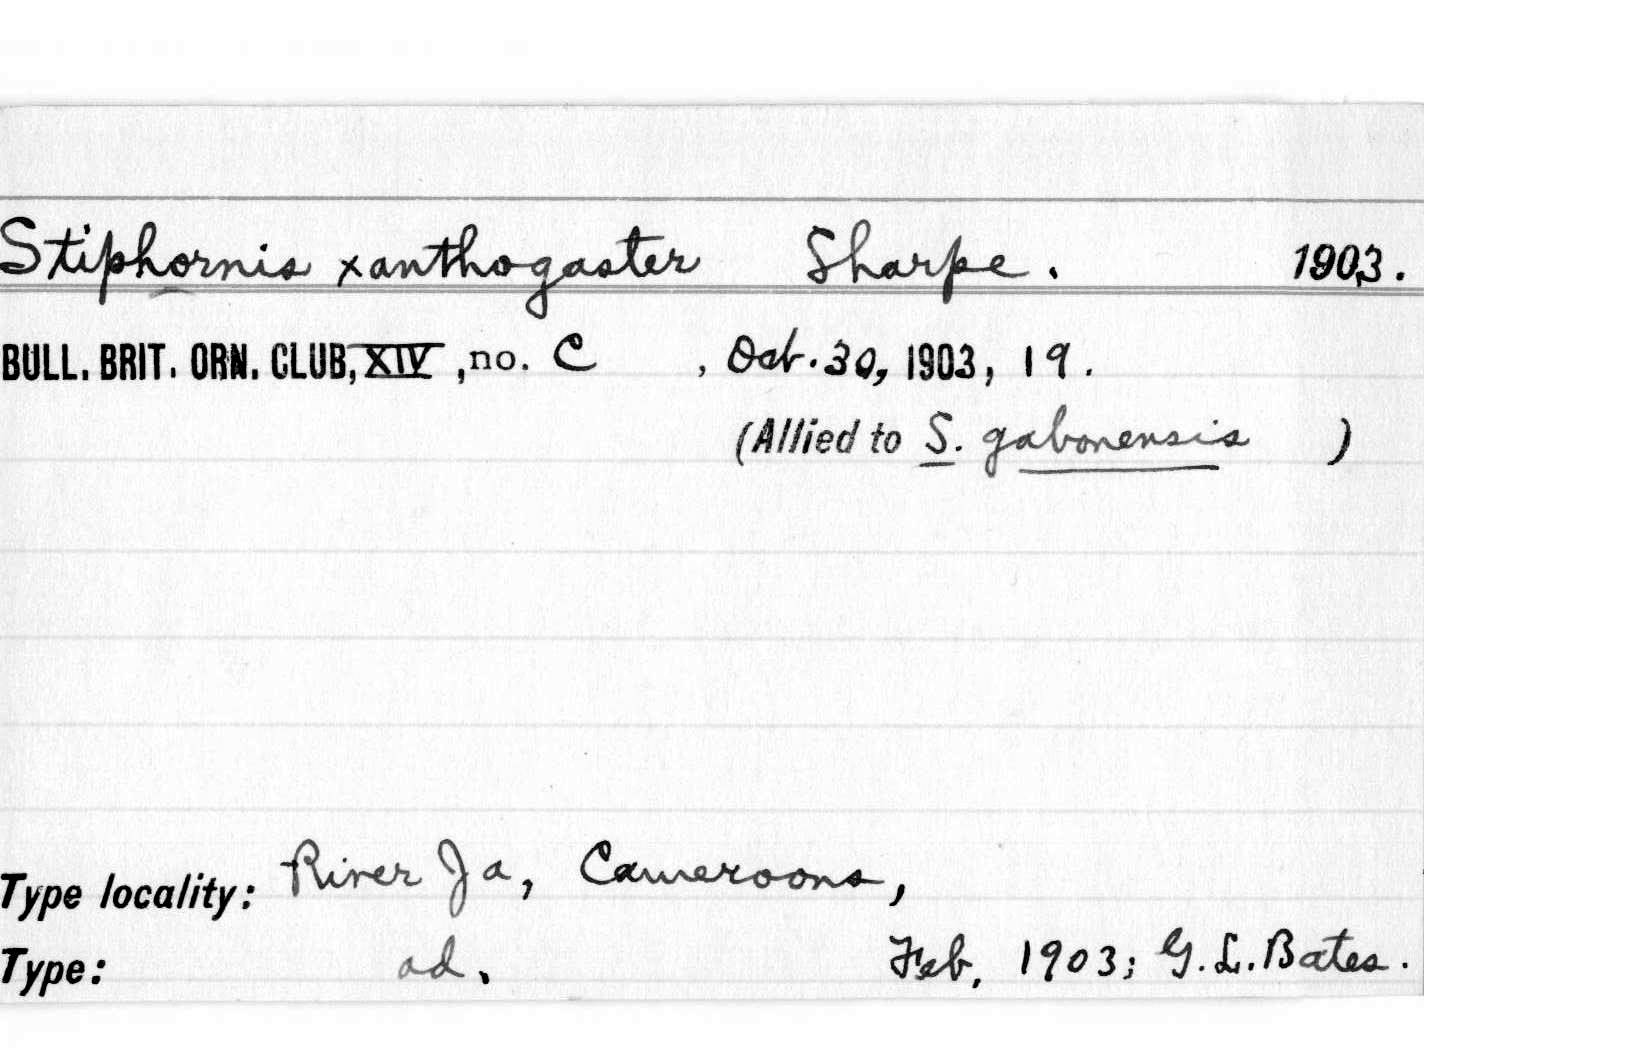 Stiphornis xanthogaster Sharpe. 1903.
BULL. BRIT. ORN. CLUB, XIV, no. C , Oct. 30, 1903, 19.
(Allied to S. gabonensis )
Type locality: River Ja, Cameroons,
Type: ad. Feb, 1903; G. L. Bates.